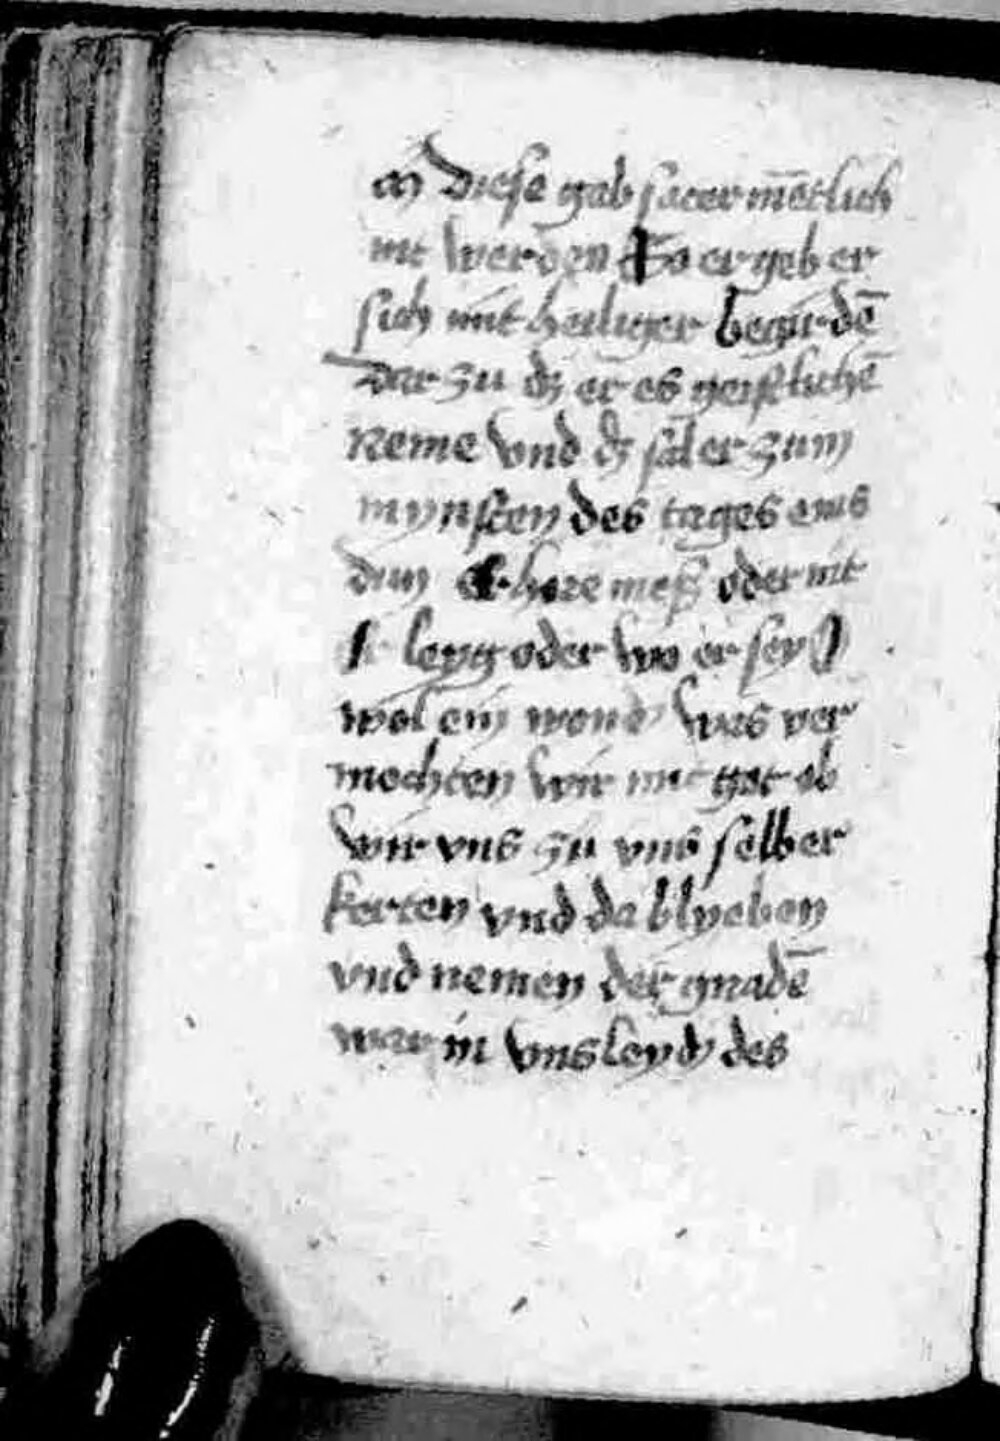 diese gab sacermētlich
nit werden So ergeb er
sich mit heiliger begirdē
dar zu dz er es geistlichē
neme vnd dz sal er zum
mynsten des tages eins
dun er hore meß oder nit
Er leyg oder wo er sey O
wol ein wond was ver
mochten wir mit got ob
wir vns zu vns selber
kerten vnd da blyeben
vnd nemen der gnadē
war in vns leyd des